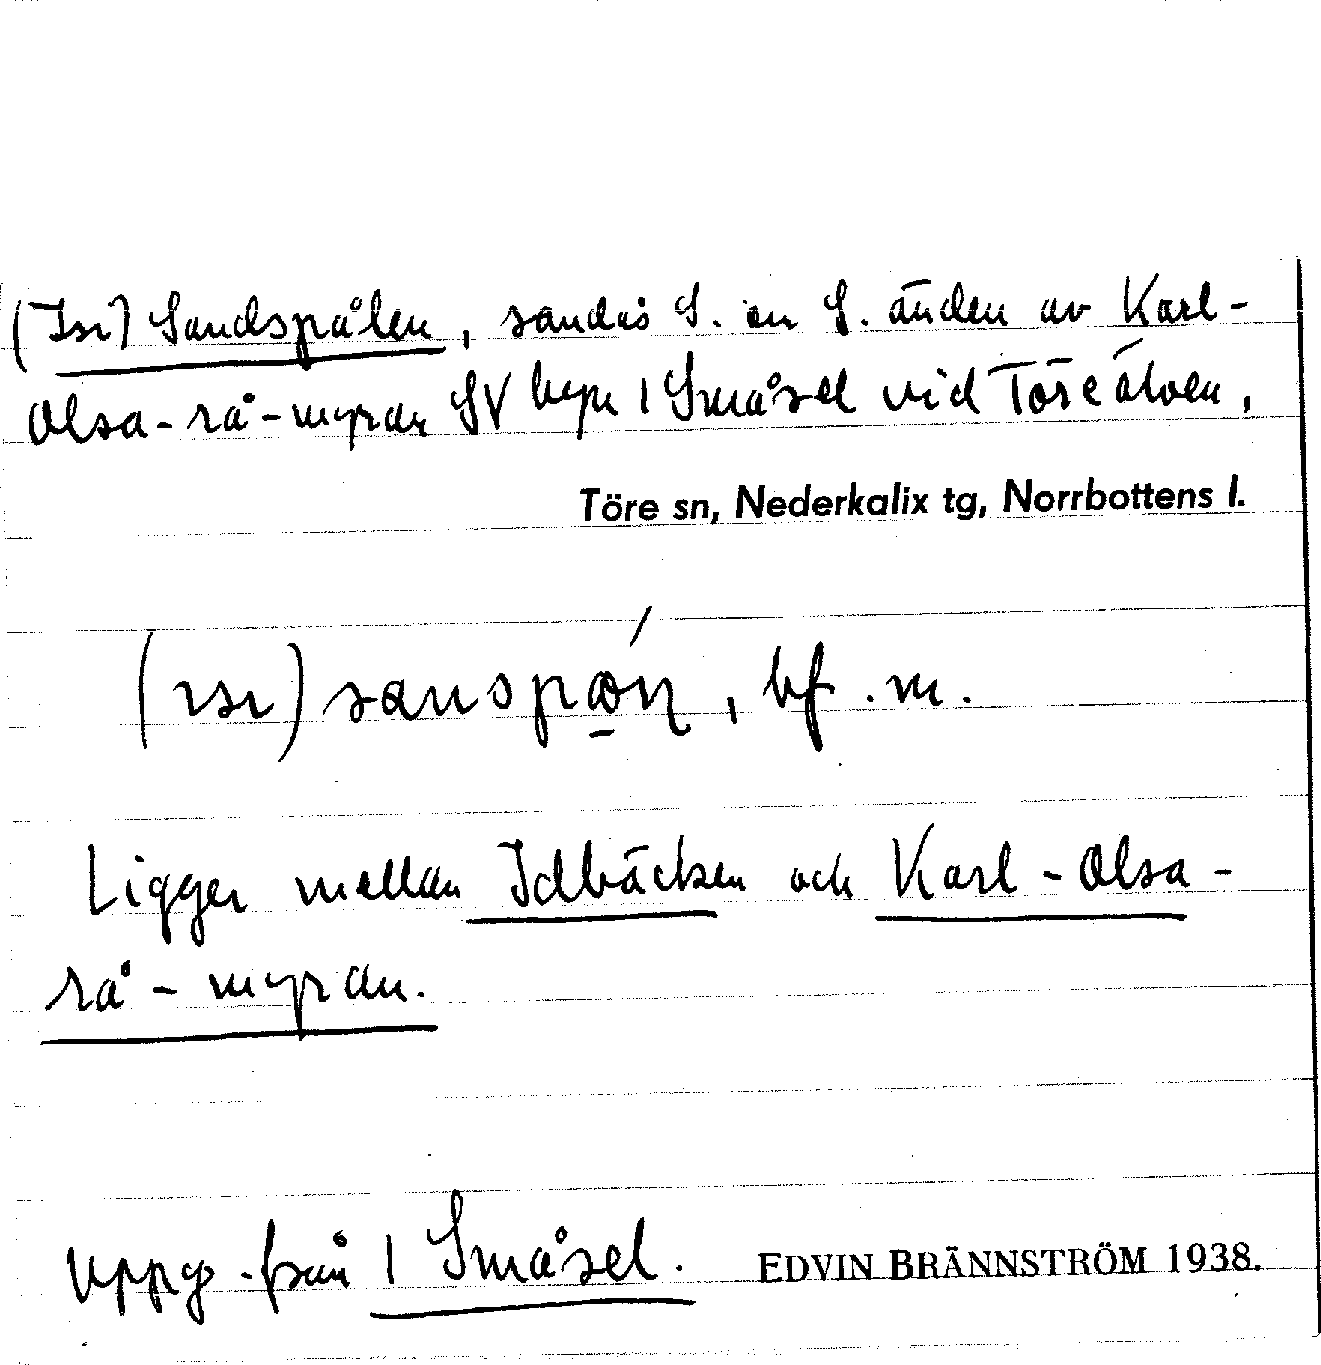 Sandspålen, sandås S. om S. änden av Karl-
Olsa-rå-myran SV byn 1 Småsel vid Töreälven,
Töre sn, Nederkalix tg, Norrbottens l.
bf. m.
Ligger mellan Idbäcken och Karl-Olsa-
rå-myran.
Uppg. från 1 Småsel. EDVIN BRÄNNSTRÖM 1938.